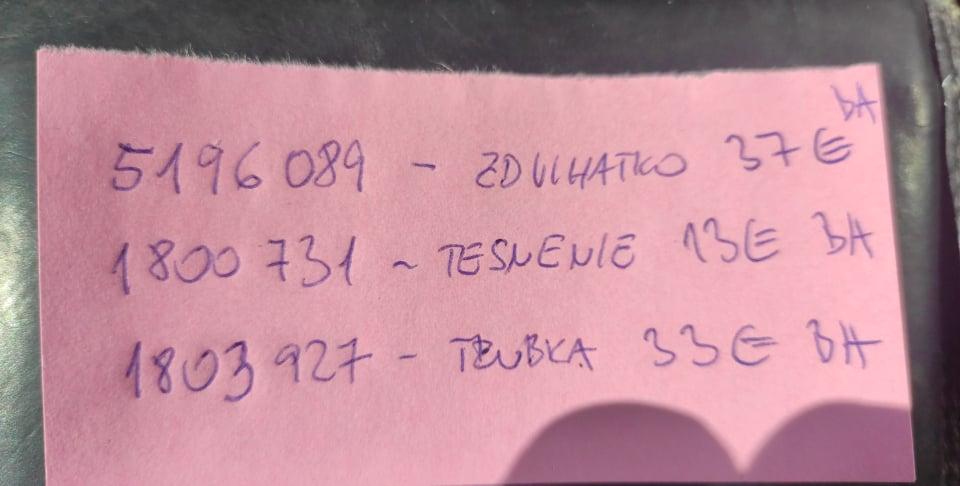 5196089 - ZDVIHATKO 37€ BA
1800731 ~ TESNENIE 13€ BA
1803927 - TRUBKA 33€ BA